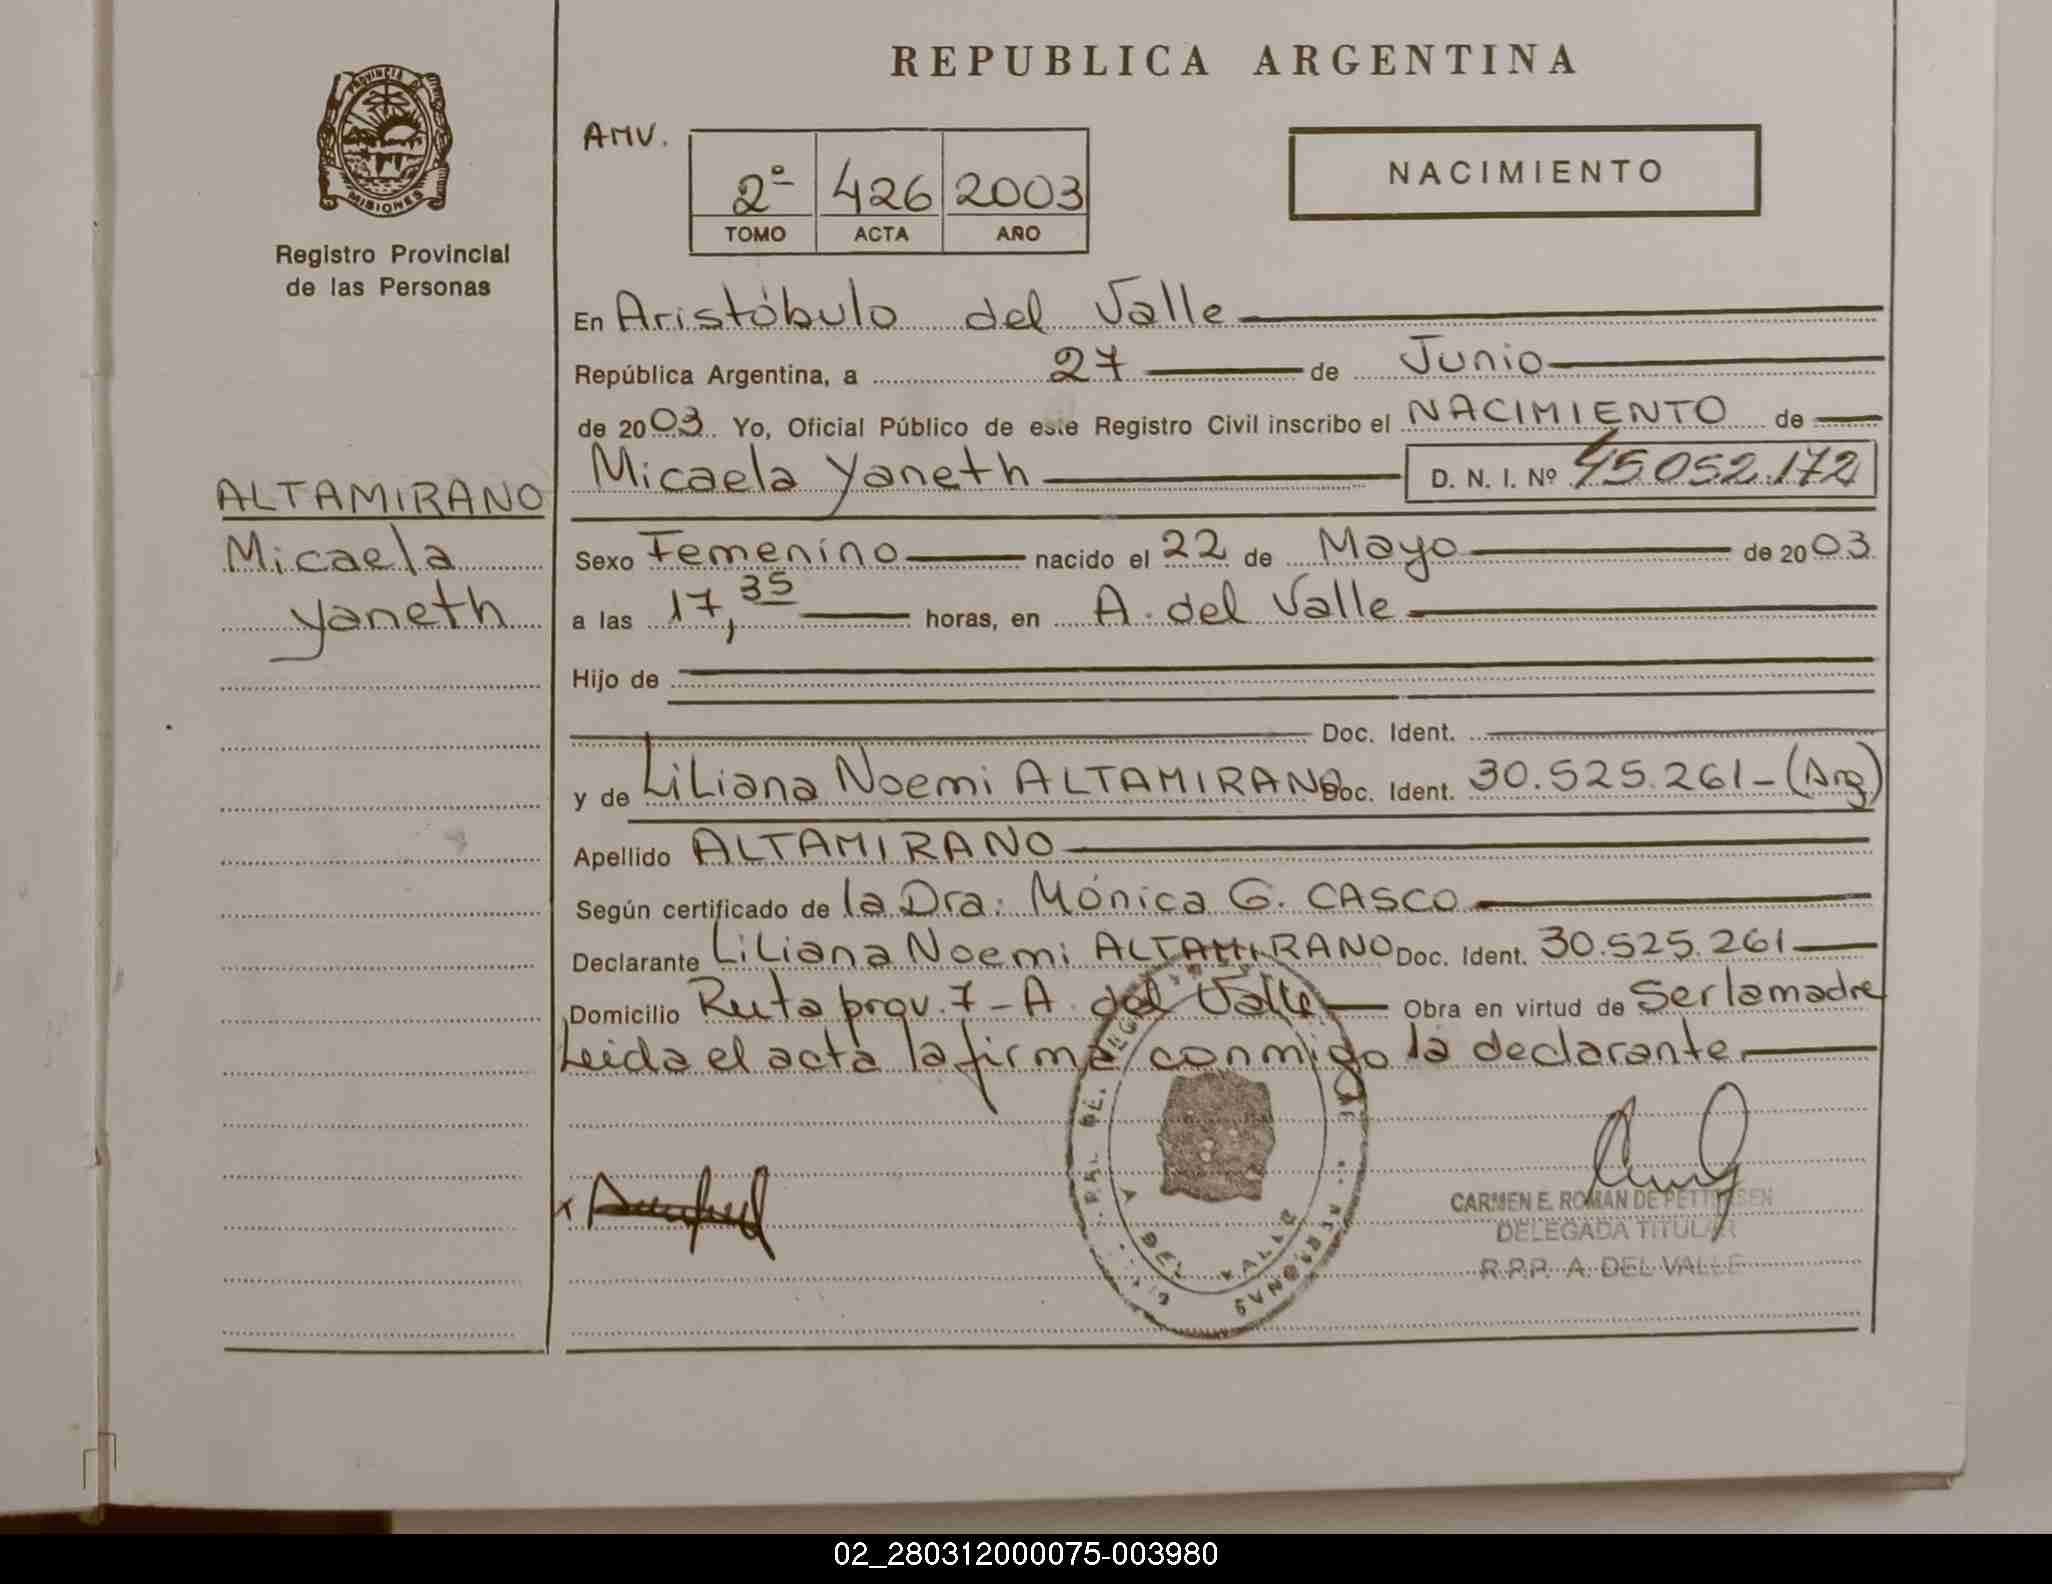 REPUBLICA ARGENTINA
PROVINCIA DE
MISIONES
Registro Provincial
de las Personas
AMV.
2º 426 2003
TOMO ACTA AÑO
NACIMIENTO
En Aristóbulo del Valle
República Argentina, a 27 de Junio
de 2003. Yo, Oficial Público de este Registro Civil inscribo el NACIMIENTO de
Micaela Yaneth D. N. I. Nº 45.052.172
ALTAMIRANO
Micaela
Yaneth
Sexo Femenino nacido el 22 de Mayo de 2003
a las 17,35 horas, en A. del Valle
Hijo de
Doc. Ident.
y de Liliana Noemi ALTAMIRANO Doc. Ident. 30.525.261-(Arg)
Apellido ALTAMIRANO
Según certificado de la Dra: Mónica G. CASCO
Declarante Liliana Noemi ALTAMIRANO Doc. Ident. 30.525.261
Domicilio Ruta prov. 7-A. del Valle Obra en virtud de Ser la madre
Leida el acta la firma conmigo la declarante
A DEL VALLE
PERSONAS
CARMEN E. ROMAN DE PETTERSEN
DELEGADA TITULAR
R.P.P. A. DEL VALLE
02_280312000075-003980